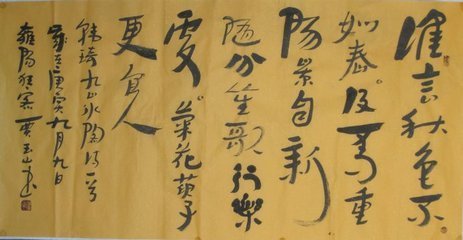 谁言秋色不
如春。及重
阳景自新
随分笙歌行樂
处。菊花萸子
更宜人
韩琦九日水阁诗一首
庚寅九月九日
雍阳